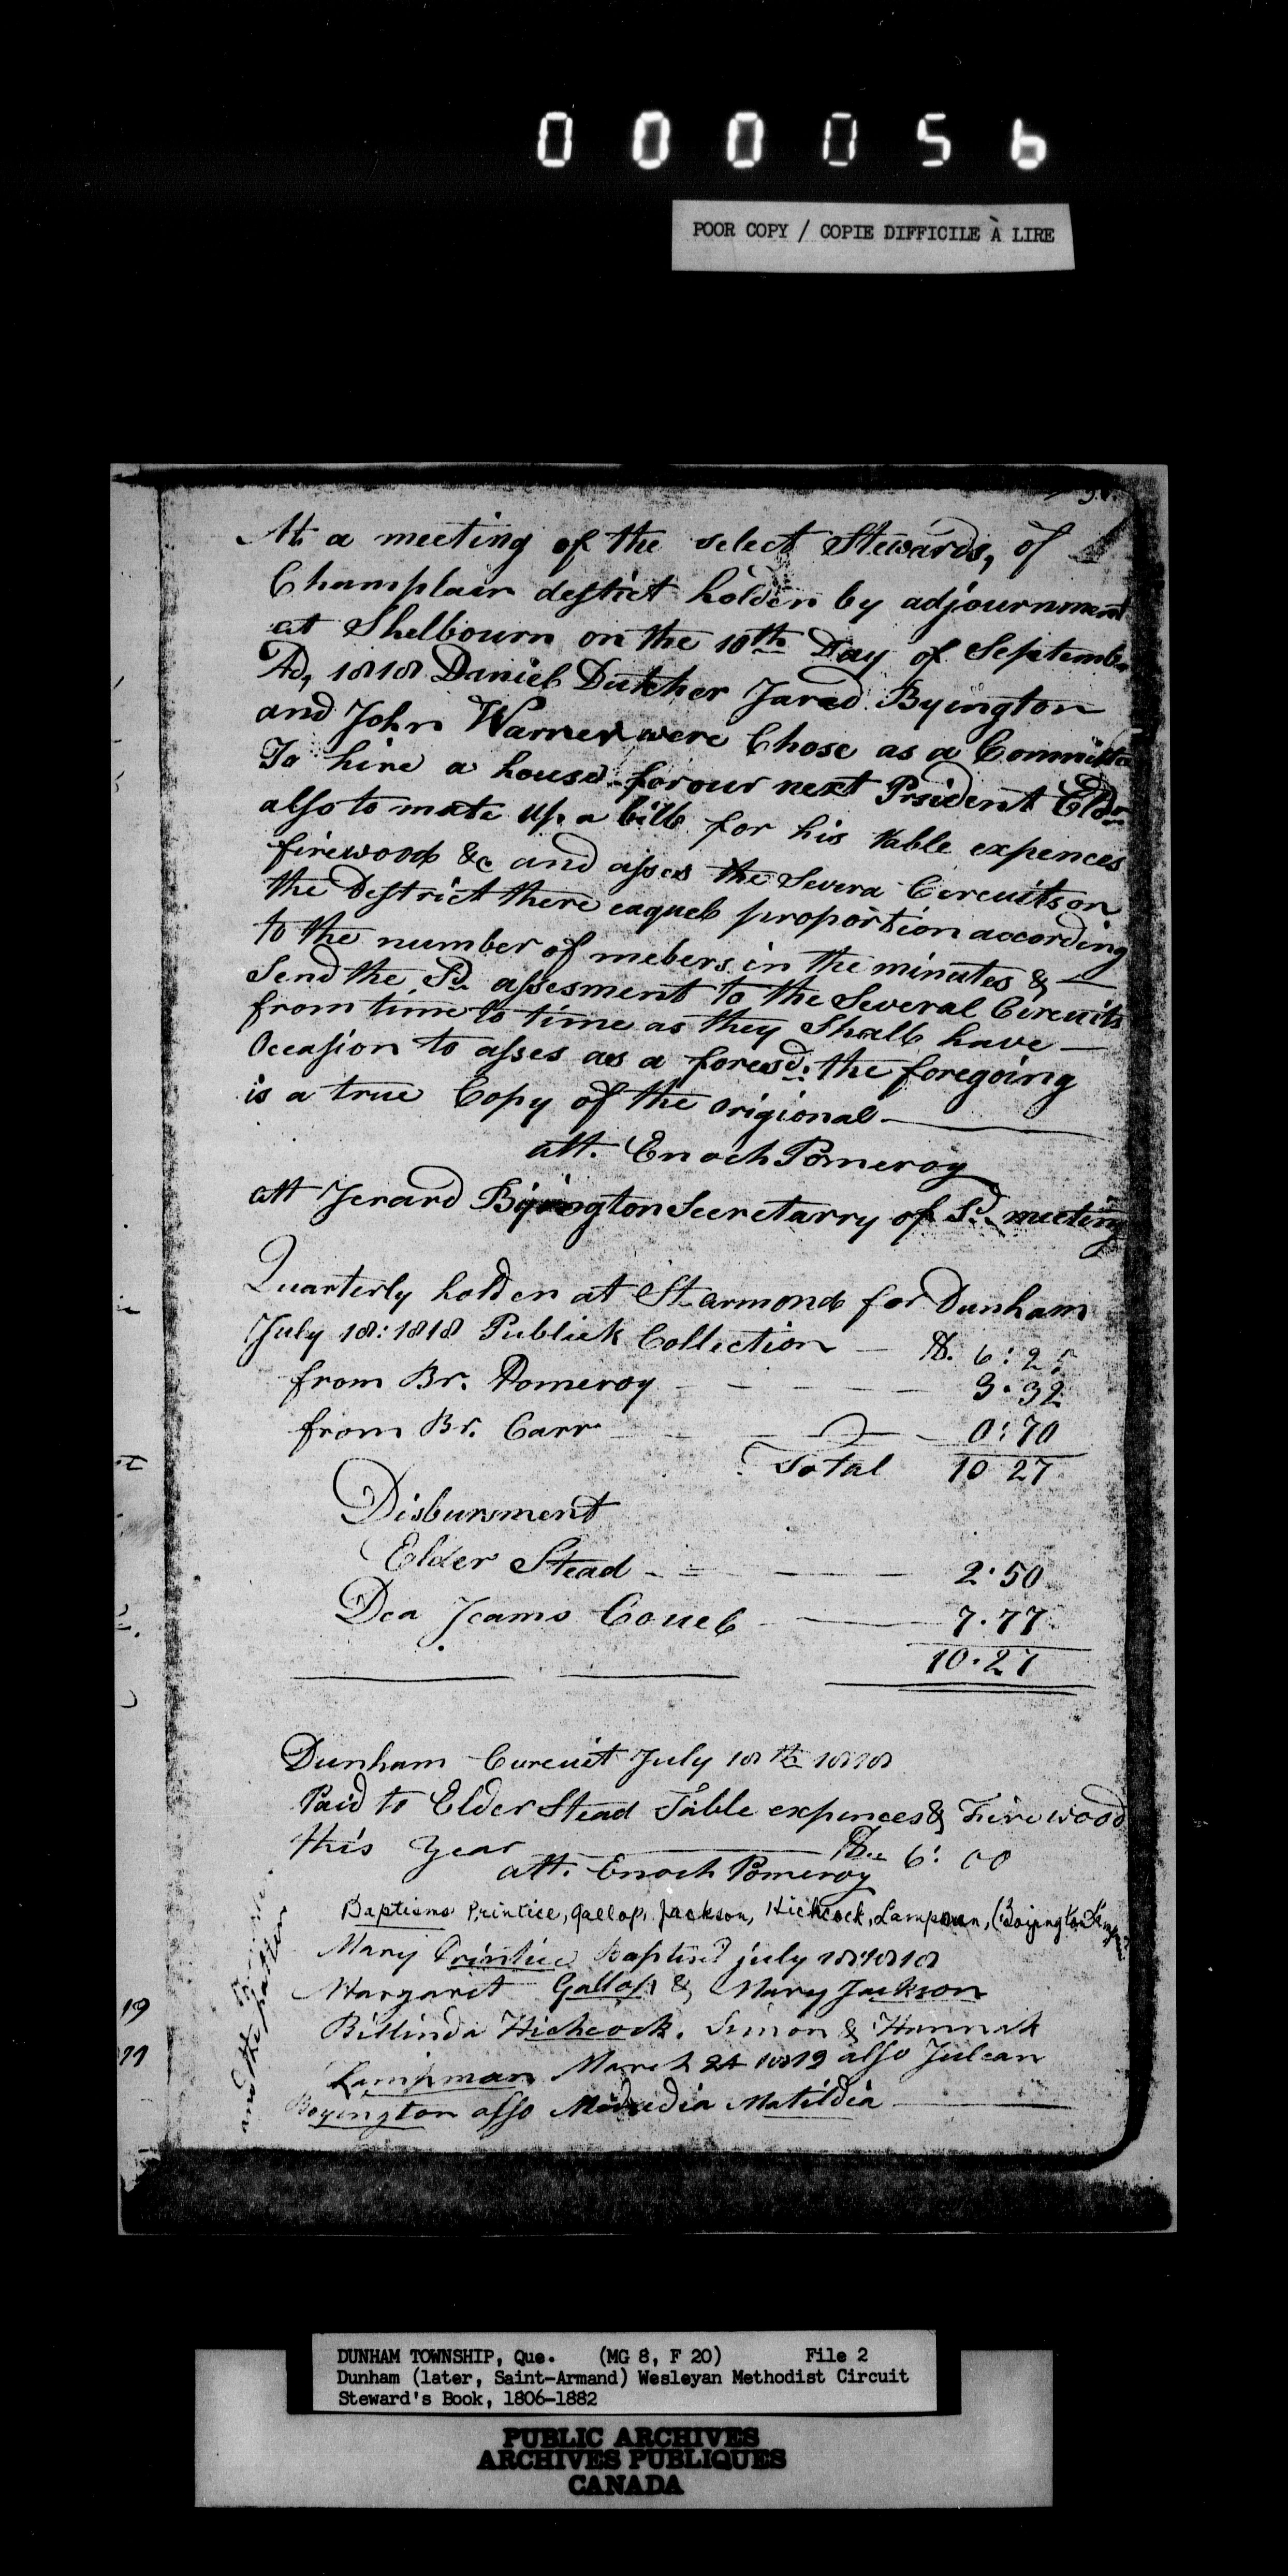 000056
POOR COPY / COPIE DIFFICILE À LIRE
At a meeting of the select Stewards, of
Champlain destict holden by adjournment
at Shelbourn on the 10th Day of September
AD, 1818 Daniel Dutcher Jared Byington
and John Warner were Chose as a Committe
To hire a house for our next Prsident Eldr
also to mate up a bill for his table expences
firewood &c and asses the Severa Circuits on
the District there eaquel proportion according
to the number of mebers in the minutes &
Send the Sd. assesment to the Several Circuits
from time to time as they Shall have —
Occasion to asses as a foresd. the foregoing
is a true Copy of the origional —
att. Enoch Pomeroy
att Jerard Byington Secretarry of Sd. meeting
Quarterly holden at St armond for Dunham
July 18: 1818 Publick Collection — $. 6:25
from Br. Pomeroy — — — 3.32
from Br. Carr — — 0:70
Total 10 27
Disbursment
Elder Stead — — 2.50
Dea Jeams Couel — 7.77
10.27
Dunham Cureuit July 18th 1818
Paid to Elder Stead Table expences & Firewood
this year — $ 6:00
att. Enoch Pomeroy
Baptisms Printice, Gallop, Jackson, Hichcock, Lampman, (Boyington
Mary Printice Baptised july 18: 1818
Margaret Gallop & Mary Jackson
Billinda Hichcock. Simon & Hannah
Lampman March 24 1819 also Julean
Boyington also Matildia
and the
19
DUNHAM TOWNSHIP, Que. (MG 8, F 20) File 2
Dunham (later, Saint-Armand) Wesleyan Methodist Circuit
Steward's Book, 1806-1882
PUBLIC ARCHIVES
ARCHIVES PUBLIQUES
CANADA